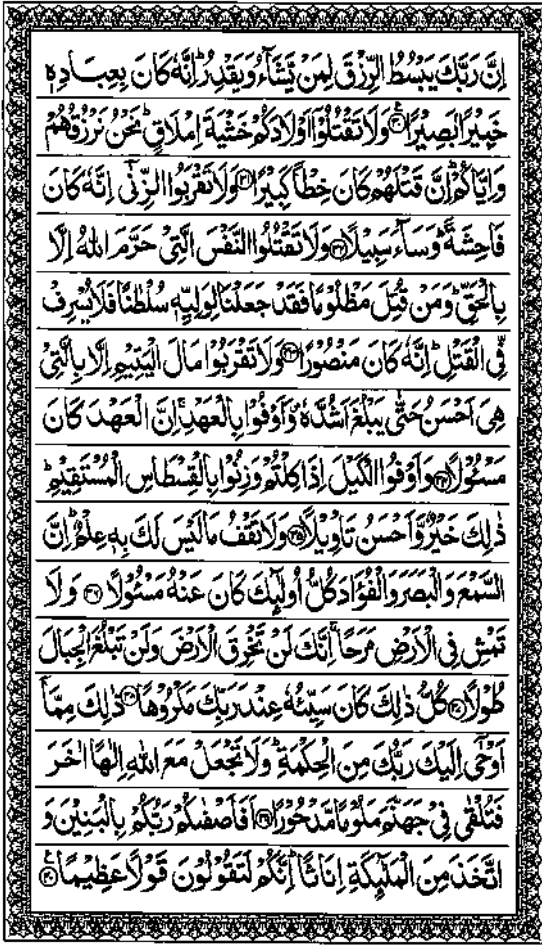 اِنَّ رَبَّكَ يَبْسُطُ الرِّزْقَ لِمَنْ يَّشَآءُ وَيَقْدِرُ ؕ اِنَّهٗ كَانَ بِعِبَادِهٖ
خَبِيْرًۢا بَصِيْرًا ﴿۳۰﴾ وَلَا تَقْتُلُوْۤا اَوْلَادَكُمْ خَشْيَةَ اِمْلَاقٍ ؕ نَحْنُ نَرْزُقُهُمْ
وَاِيَّاكُمْ ؕ اِنَّ قَتْلَهُمْ كَانَ خِطْاً كَبِيْرًا ﴿۳۱﴾ وَلَا تَقْرَبُوا الزِّنٰۤى اِنَّهٗ كَانَ
فَاحِشَةً ؕ وَسَآءَ سَبِيْلًا ﴿۳۲﴾ وَلَا تَقْتُلُوا النَّفْسَ الَّتِيْ حَرَّمَ اللّٰهُ اِلَّا
بِالْحَقِّ ؕ وَمَنْ قُتِلَ مَظْلُوْمًا فَقَدْ جَعَلْنَا لِوَلِيِّهٖ سُلْطٰنًا فَلَا يُسْرِفْ
فِّي الْقَتْلِ ؕ اِنَّهٗ كَانَ مَنْصُوْرًا ﴿۳۳﴾ وَلَا تَقْرَبُوْا مَالَ الْيَتِيْمِ اِلَّا بِالَّتِيْ
هِيَ اَحْسَنُ حَتّٰى يَبْلُغَ اَشُدَّهٗ ۪ وَاَوْفُوْا بِالْعَهْدِ ۚ اِنَّ الْعَهْدَ كَانَ
مَسْـُٔوْلًا ﴿۳۴﴾ وَاَوْفُوا الْكَيْلَ اِذَا كِلْتُمْ وَزِنُوْا بِالْقِسْطَاسِ الْمُسْتَقِيْمِ ؕ
ذٰلِكَ خَيْرٌ وَّاَحْسَنُ تَاْوِيْلًا ﴿۳۵﴾ وَلَا تَقْفُ مَا لَيْسَ لَكَ بِهٖ عِلْمٌ ؕ اِنَّ
السَّمْعَ وَالْبَصَرَ وَالْفُؤَادَ كُلُّ اُولٰٓئِكَ كَانَ عَنْهُ مَسْـُٔوْلًا ﴿۳۶﴾ وَلَا
تَمْشِ فِي الْاَرْضِ مَرَحًا ۚ اِنَّكَ لَنْ تَخْرِقَ الْاَرْضَ وَلَنْ تَبْلُغَ الْجِبَالَ
طُوْلًا ﴿۳۷﴾ كُلُّ ذٰلِكَ كَانَ سَيِّئُهٗ عِنْدَ رَبِّكَ مَكْرُوْهًا ﴿۳۸﴾ ذٰلِكَ مِمَّاۤ
اَوْحٰۤى اِلَيْكَ رَبُّكَ مِنَ الْحِكْمَةِ ؕ وَلَا تَجْعَلْ مَعَ اللّٰهِ اِلٰهًا اٰخَرَ
فَتُلْقٰى فِيْ جَهَنَّمَ مَلُوْمًا مَّدْحُوْرًا ﴿۳۹﴾ اَفَاَصْفٰىكُمْ رَبُّكُمْ بِالْبَنِيْنَ وَ
اتَّخَذَ مِنَ الْمَلٰٓئِكَةِ اِنَاثًا ؕ اِنَّكُمْ لَتَقُوْلُوْنَ قَوْلًا عَظِيْمًا ﴿۴۰﴾